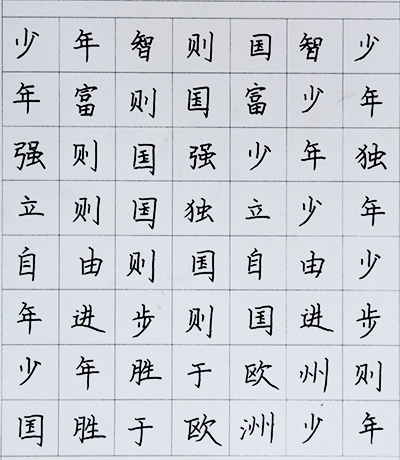 少年智则国智少
年富则国富少年
强则国强少年独
立则国独立少年
自由则国自由少
年进步则国进步
少年胜于欧州则
国胜于欧洲少年